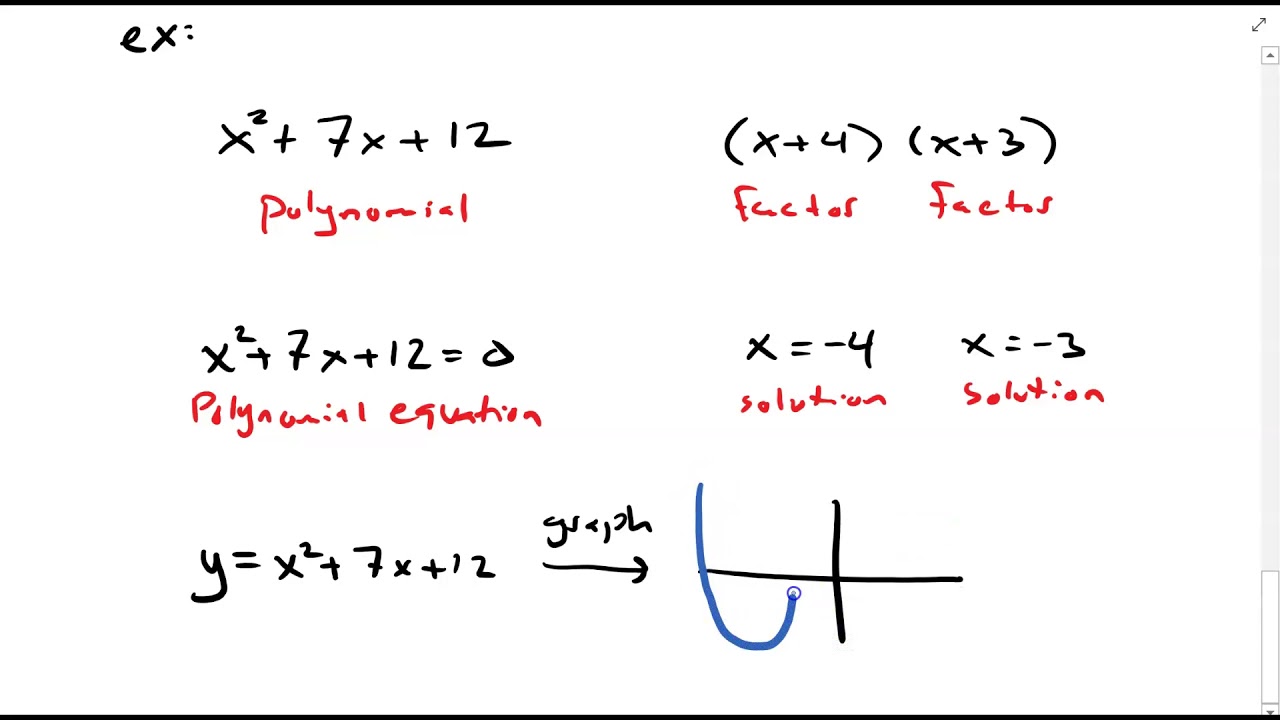 ex:
x² + 7x + 12 (x+4) (x+3)
Polynomial factor factor
x² + 7x + 12 = 0 x = -4 x = -3
Polynomial equation solution solution
graph
y = x² + 7x + 12